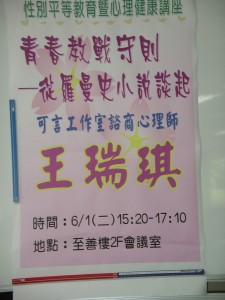 性別平等教育暨心理健康講座
青春教戰守則
—從羅曼史小說談起
可言工作室諮商心理師
王瑞琪
時間：6/1(二)15:20-17:10
地點：至善樓2F會議室